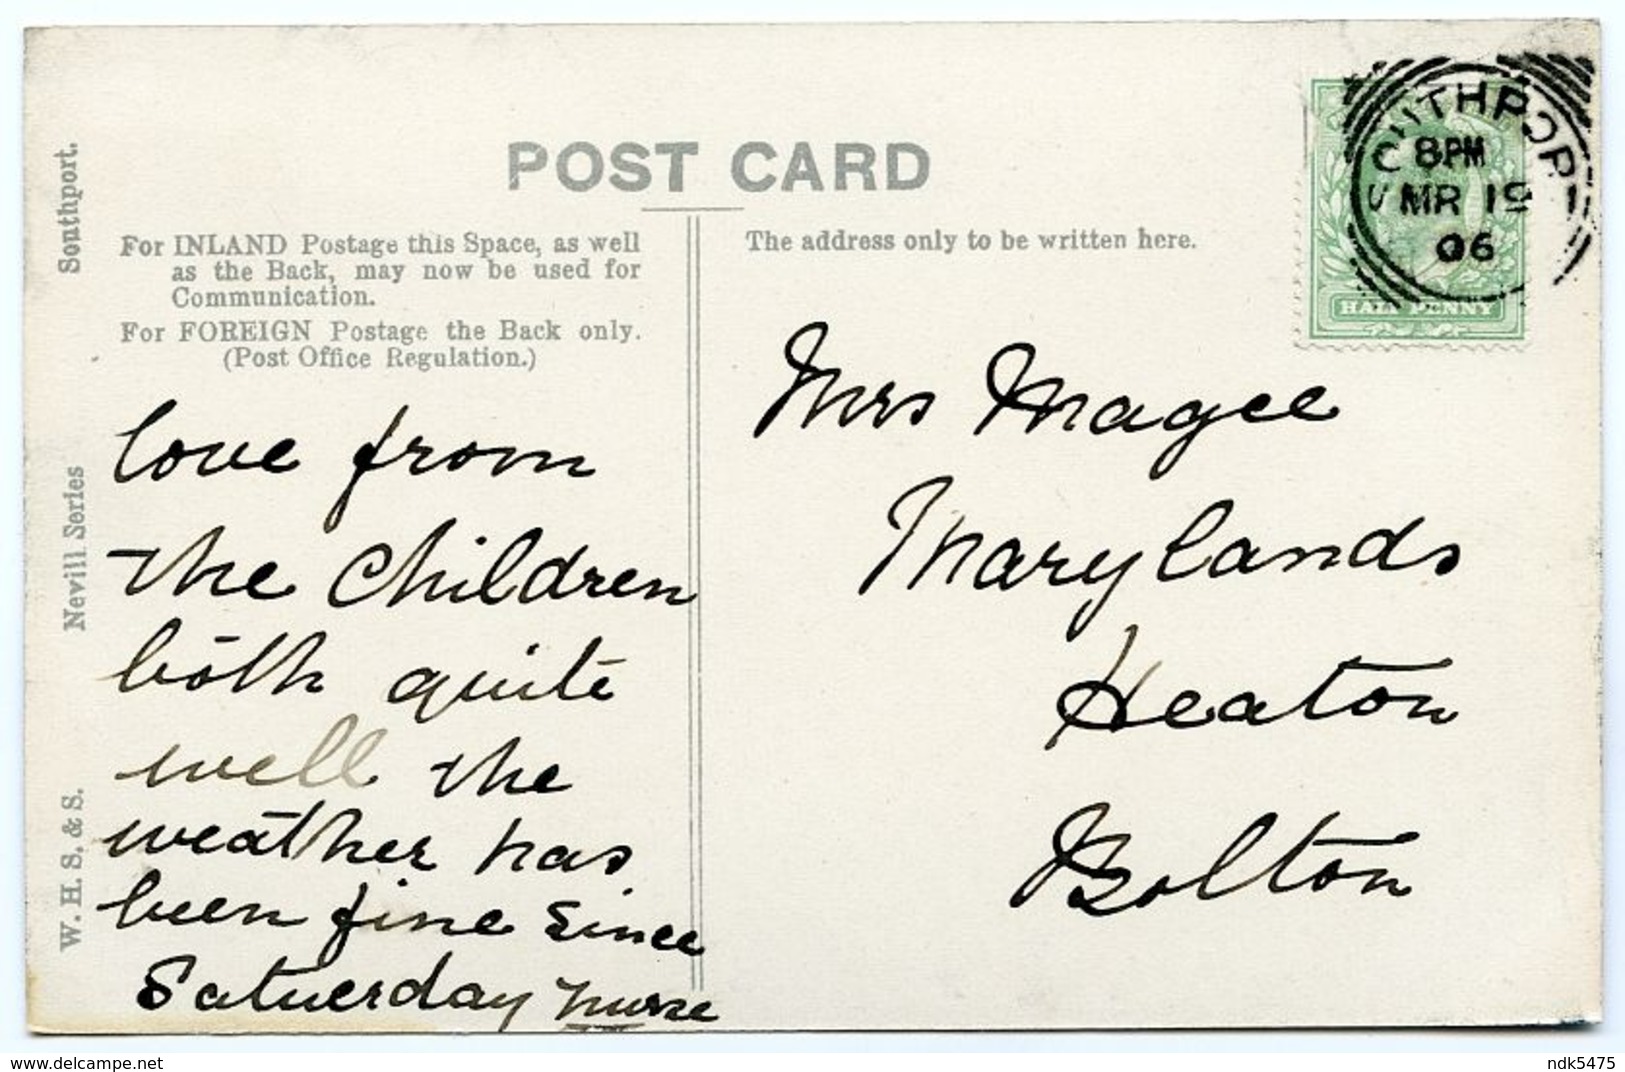 POST CARD
For INLAND Postage this Space, as well
as the Back, may now be used for
Communication.
For FOREIGN Postage the Back only.
(Post Office Regulation.)
The address only to be written here.
Southport.
Nevill Series
W. H. S. & S.
SOUTHPORT
8.PM
MR 19
06
HALF PENNY
love from
the Children
both quite
well the
weather has
been fine since
Satuerday nurse
Mrs Magee
Marylands
Heaton
Bolton
www.delcampe.net
ndk5475